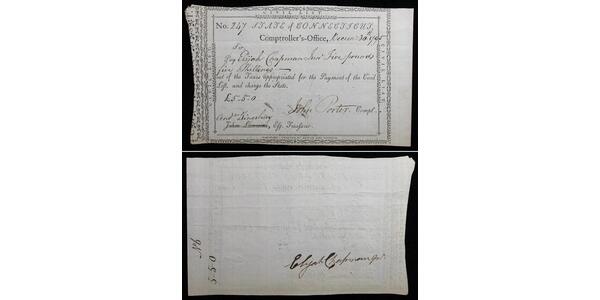 CIVIL LIST
No. 247 STATE of CONNECTICUT,
Comptroller's-Office, 30th 1795
SIR
Pay Elijah Chapman Junr Five pounds
five Shillings
out of the Taxes appropriated for the Payment of the Civil
List, and charge the State.
£5-5-0
John Porter Compt.
Andw Kingsbury
John Lawrence, Esq. Treasurer.
Elijah Chapman Jur.
5-5-0